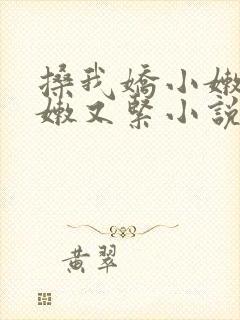 搡我嬌小嫩
嫩又緊小說
黄翠